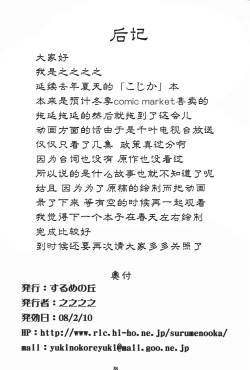 后记
大家好
我是之之之之
延续去年夏天的「こじか」本
本来是预计冬季comic market贩卖的
拖延拖延的然后就拖到了这会儿
动画方面的话由于是千叶电视台放送
仅仅只看了几集 政策真过分啊
因为台词也没有 原作也没看过
所以说的是什么故事也就不知道了呢
姑且 因为为了原稿的绘制而把动画
录了下来 等有空的时候再一起观看
我觉得下一个本子在春天左右绘制
完成比较好
到时候还要再次请大家多多关照了
奥付
発行：するめの丘
発行者：之之之之
発効日：08/2/10
HP：http://www.ric.hi-ho.ne.jp/surumenooka/
mail：yukinokoreyuki@mail.goo.ne.jp